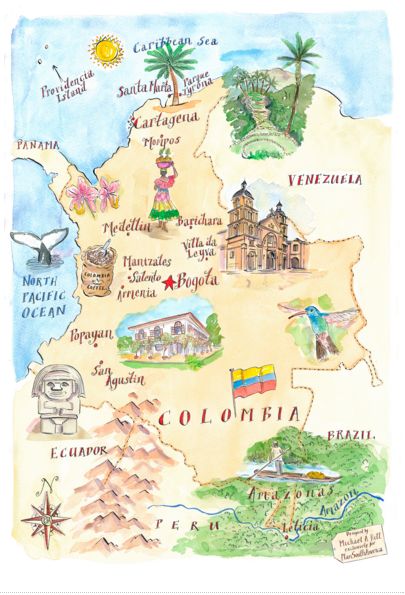 Caribbean Sea
Providencia
Island
Santa Marta
Parque
Tyrona
Cartagena
PANAMA
Mompos
VENEZUELA
Medellin
Barichara
Villa da
Leyva
Manizales
Salento
Armenia
Bogota
COLOMBIA
COFFEE
NORTH
PACIFIC
OCEAN
Popayan
San
Agustin
COLOMBIA
ECUADOR
BRAZIL.
Amazonas
Amazon
N
PERU
Leticia
Designed by
Michael A Hill
exclusively for
PlanSouthAmerica